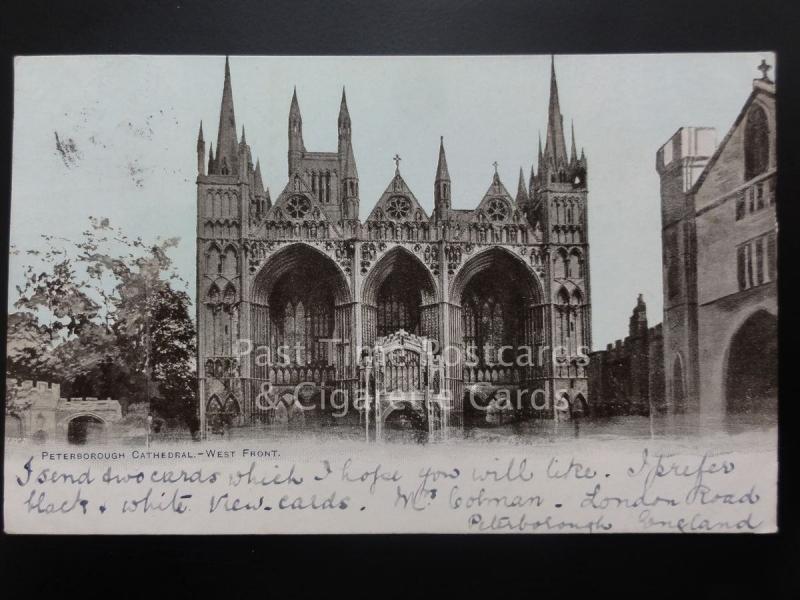 Past Time Postcards
& Cigarette Cards
PETERBOROUGH CATHEDRAL.-WEST FRONT.
I send two cards which I hope you will like. I prefer
black & white view-cards. Mrs Colman - London Road
Peterborough England